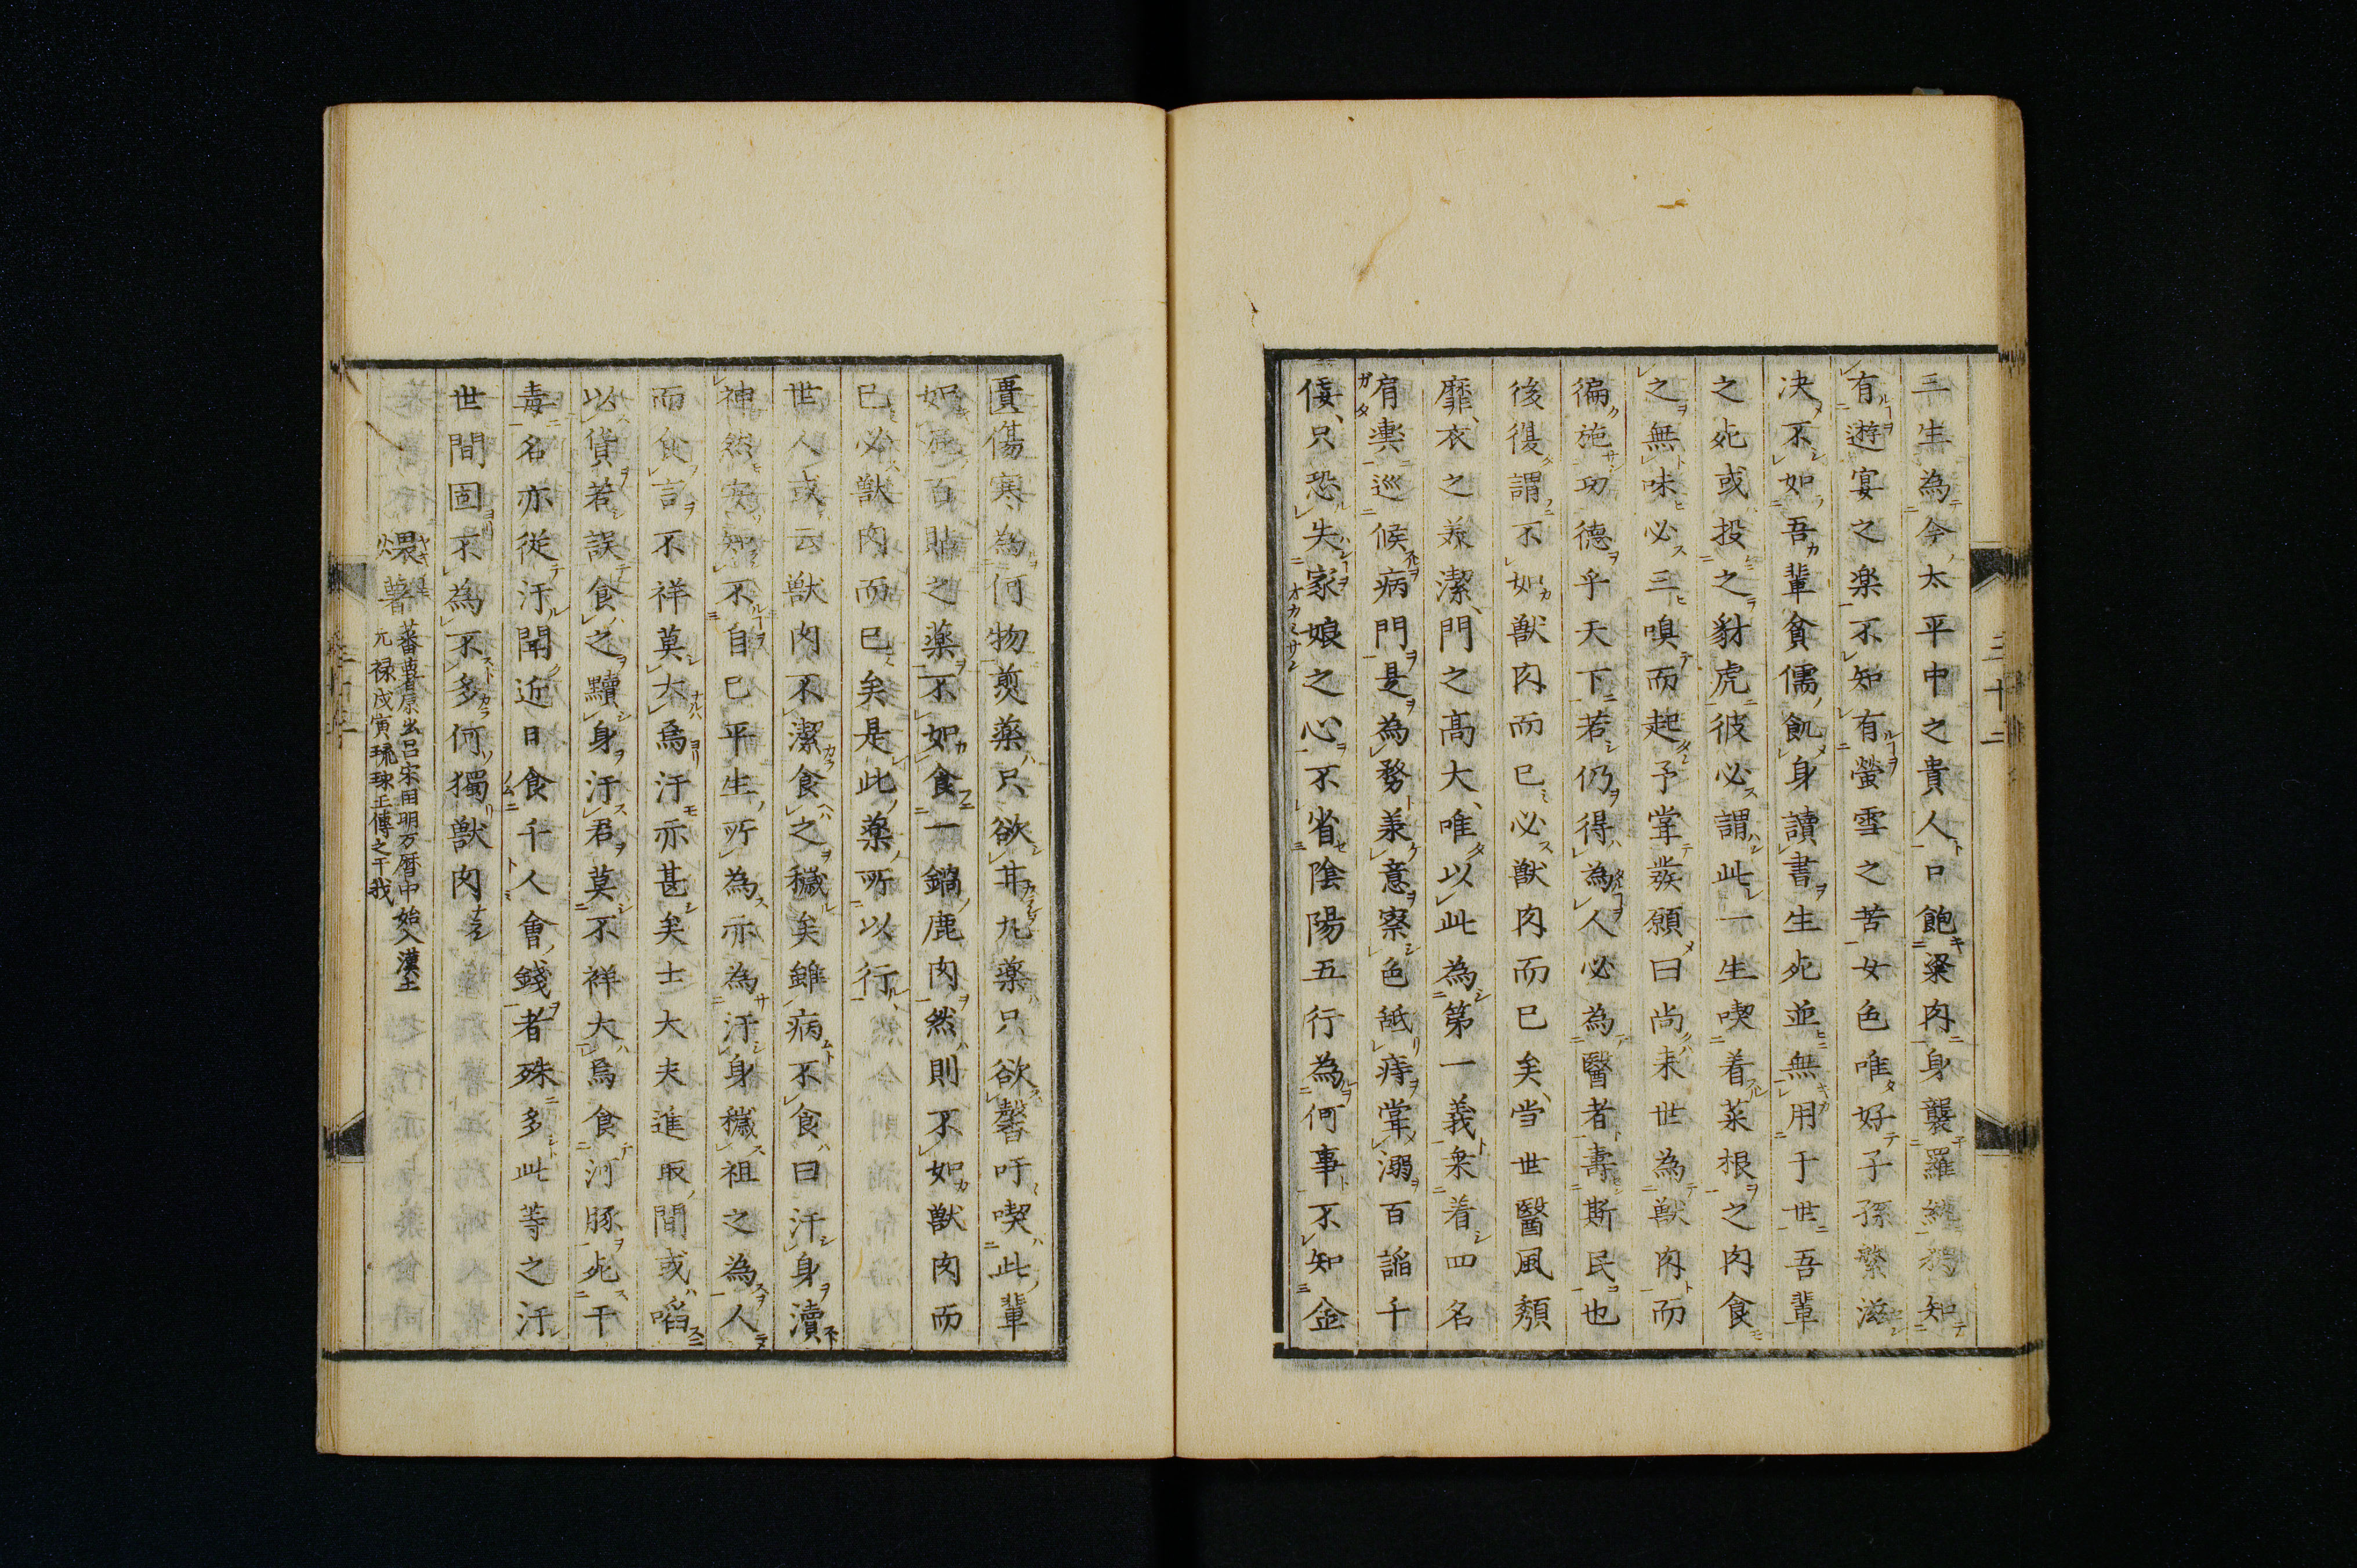 三十二
三生為今太平中之貴人口飽粱肉身襲羅紈獨知
有遊宴之楽不知有螢雪之苦女色唯好子孫繁滋
决不如吾輩貧儒飢身讀書生死並無用于世吾輩
之死或投之豺虎彼必謂此一生喫着菜根之肉食
之無味必三嗅而起予甞發願曰尚来世為獣肉而
徧施功德乎天下若仍得為人必為醫者壽斯民也
後復謂不如獣肉而已必獣肉而已矣当世醫風頽
靡衣之美潔門之髙大唯以此為第一義衆着四名
肩輿巡候病門是為務兼意察色舐痔甞溺百諂千
佞只恐失家娘之心不省陰陽五行為何事不知金
匱傷寒為何物煎薬只欲甘丸薬只欲馨吁喫此輩
如百貼之薬不如食一鍋鹿肉然則不如獣肉而
已必獣肉而已矣是此薬所以行
世人或云獣肉不潔食之穢矣雖病不食曰汗身瀆
神然安知不自已平生所為亦為汗身穢祖之為人
而食言不祥莫大焉汗亦甚矣士大夫進取間或啗
以貨若誤食之黷身汗君莫不祥大焉食河豚死干
毒名亦従汗聞近日食千人會錢者殊多此等之汗
世間固不為不多何獨獣肉
煨薯 蕃薯原出呂宋国明万暦中始入漢土
元禄戊寅琉球王傳之干我